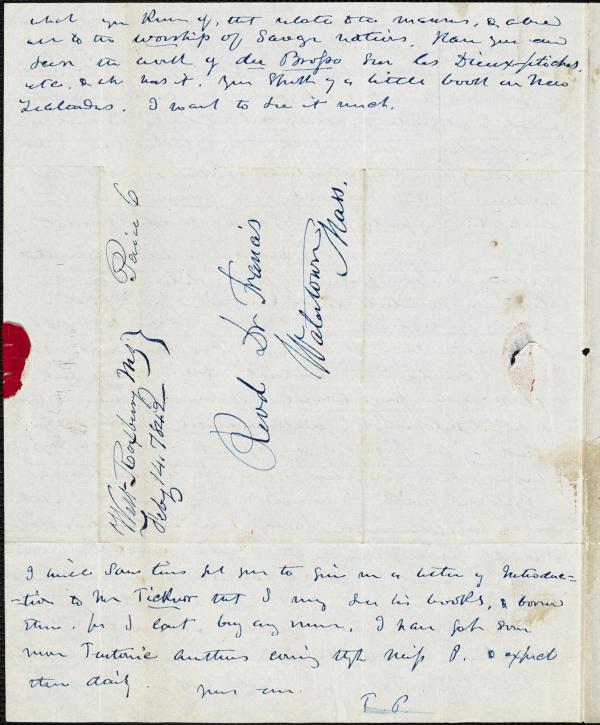 what you know of, that relate to the manners, & above
all to the worship of Savage nations. Have you ever
seen the work of du Brosso Sur les Dieux-fetiches,
etc. & who has it. You spoke of a little book on New
Zealanders. I want to see it much.
Paid 6
West Roxbury Ms
Feby 14. 1842
Revd Dr Francis
Watertown
Mass.
I will sometime get you to give me a letter of Introduc=
=tion to Mr Ticknor that I may see his books, & borrow
them, for I can't buy any more. I have got some
more Teutonic authors coming thro Miss P. & expect
them daily
yours ever
T P.